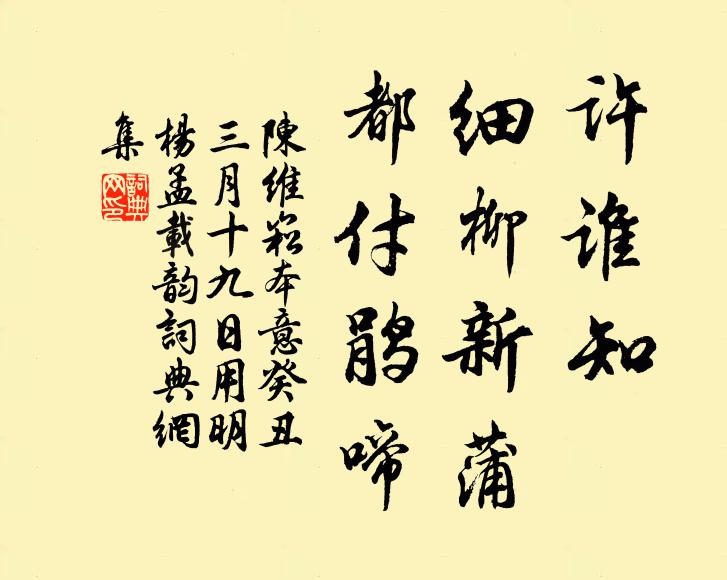 許誰知
細柳新蒲
都付鹃啼
陳維崧本意癸丑
三月十九日用明
楊孟載韵詞典網
集
詞典
网印